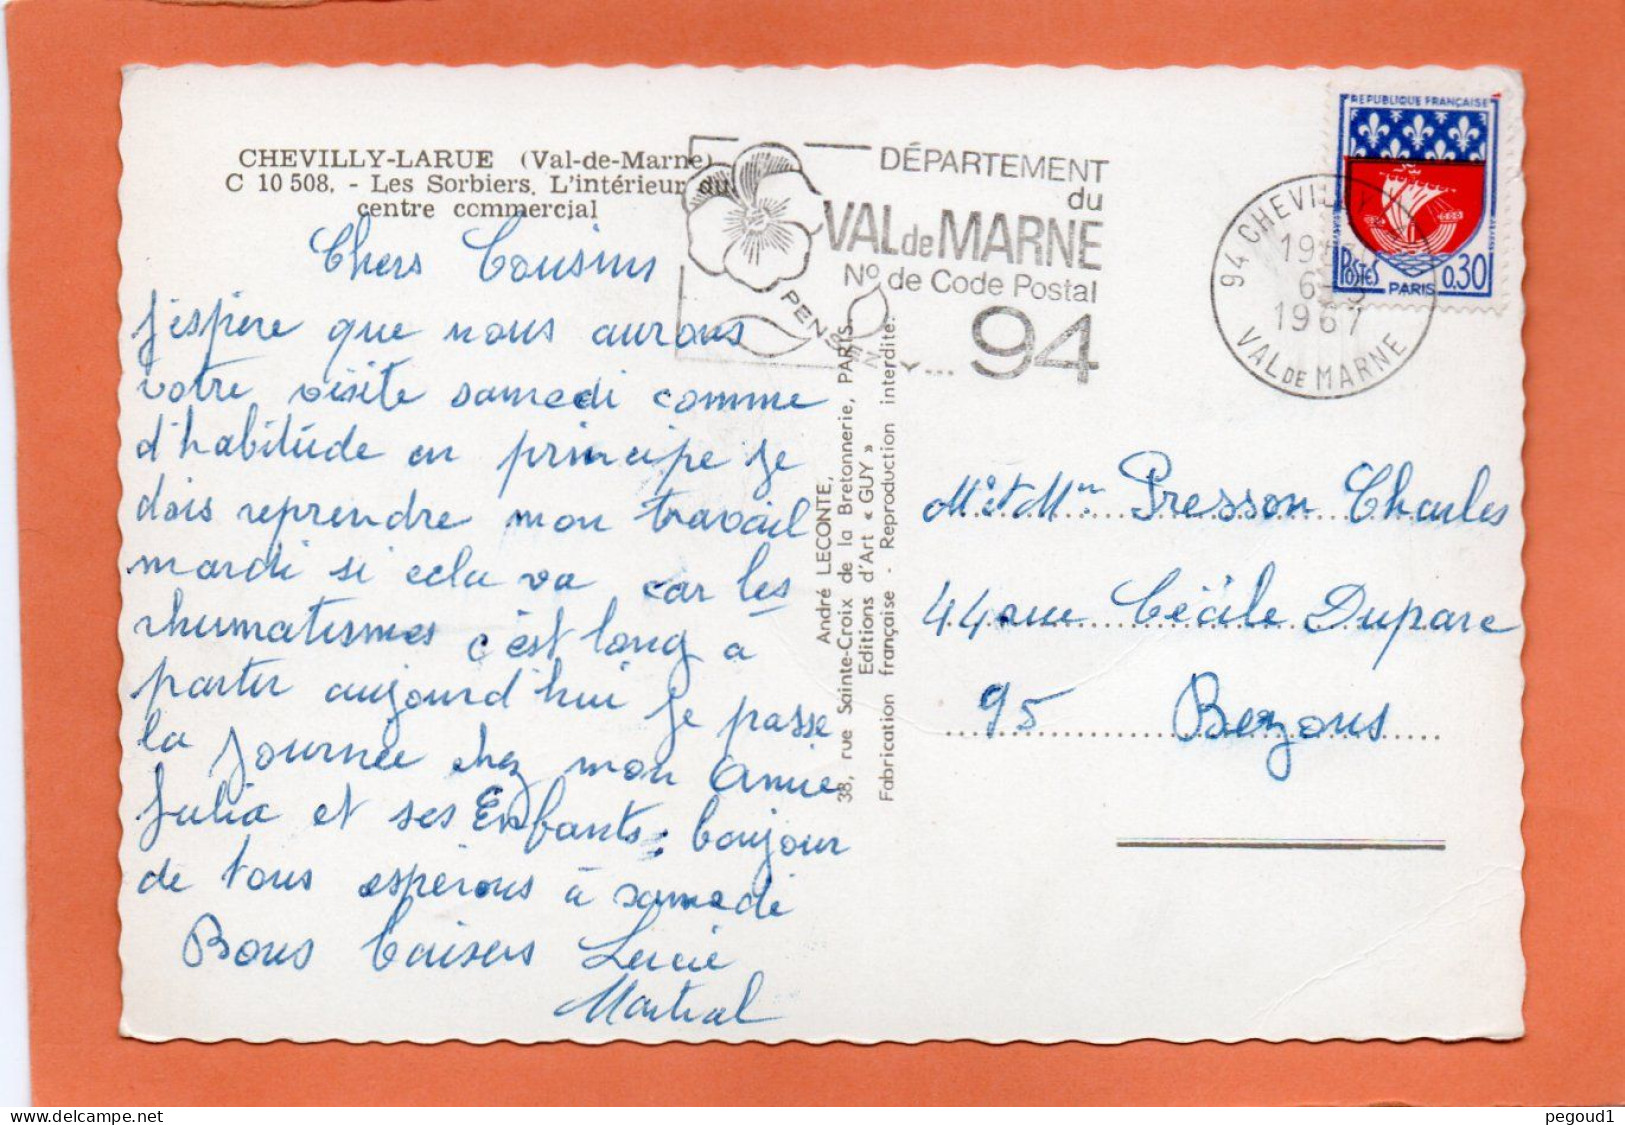 CHEVILLY-LARUE (Val-de-Marne)
C 10 508. - Les Sorbiers. L'intérieur du
centre commercial
Chers Cousins
J'espère que nous aurons
votre visite samedi comme
d'habitude en principe je
dois reprendre mon travail
mardi si cela va car les
rhumatismes c'est long a
partir aujourd'hui je passe
la journée chez mon Amie
Julia et ses Enfants, bonjour
de tous espérons à samedi
Bons baisers Lucie
Martial
André LECONTE,
38, rue Sainte-Croix de la Bretonnerie, PARIS.
Editions d'Art « GUY »
Fabrication française - Reproduction interdite.
DÉPARTEMENT
du
VAL de MARNE
No de Code Postal
... 94
94 CHEVILLY
1967
VAL DE MARNE
REPUBLIQUE FRANÇAISE
POSTES PARIS 0,30
Mr et Mme Presson Charles
44 rue Cécile Duparc
95 Bezons
pegoud1
www.delcampe.net